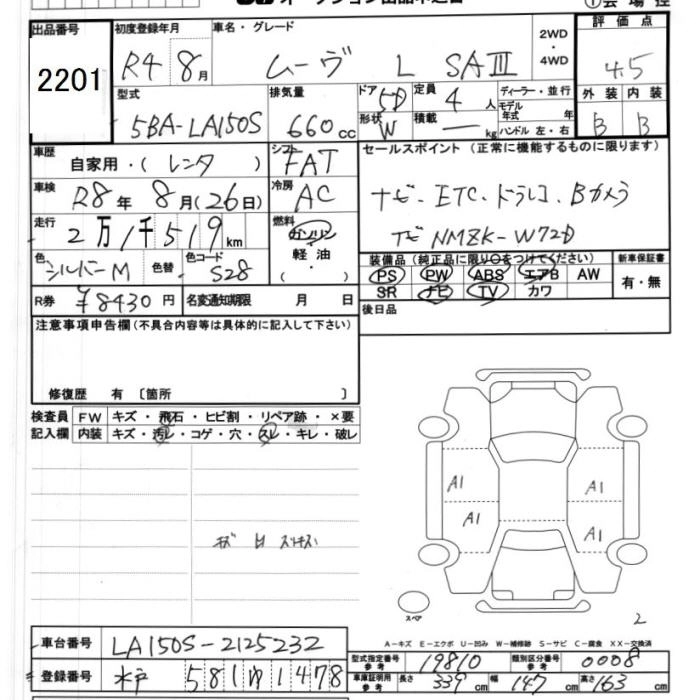 出品番号 初度登録年月 車名・グレード 2WD・4WD 評価点
2201 R4 8月 ムーヴ L SAIII 4.5
型式 排気量 ドア 5D 定員 4人 ディーラー・並行 モデル年式 年 外装 内装
5BA-LA150S 660cc 形状 W 積載 — kg ハンドル 左・右 B B
車歴 自家用・(レンタ) シフト FAT セールスポイント (正常に機能するものに限ります)
車検 R8年 8月(26日) 冷房 AC ナビ・ETC・ドラレコ・Bカメラ
走行 2万1千519km 燃料 ガソリン 軽油・ ナビ NMZK-W72D
色 シルバーM 色替 色コード S28
装備品(純正品に限り○をつけてください) 新車保証書
PS PW ABS エアB AW 有・無
SR ナビ TV カワ
R券 ¥8430円 名変通知期限 月 日
後日品
注意事項申告欄(不具合内容等は具体的に記入して下さい)
修復歴 有 〔箇所 〕
検査員 FW キズ・飛石・ヒビ割・リペア跡・×要
記入欄 内装 キズ・汚レ・コゲ・穴・スレ・キレ・破レ
A1 A1
A1 A1
スペア
2
A-キズ E-エクボ U-凹み W-補修跡 S-サビ C-腐食 XX-交換済
車台番号 LA150S-2125232
型式指定番号 参考 19810 類別区分番号 参考 0008
登録番号 水戸 581 ゆ 1478
車庫証明用 参考 長さ 339cm 幅 147cm 高さ 163cm